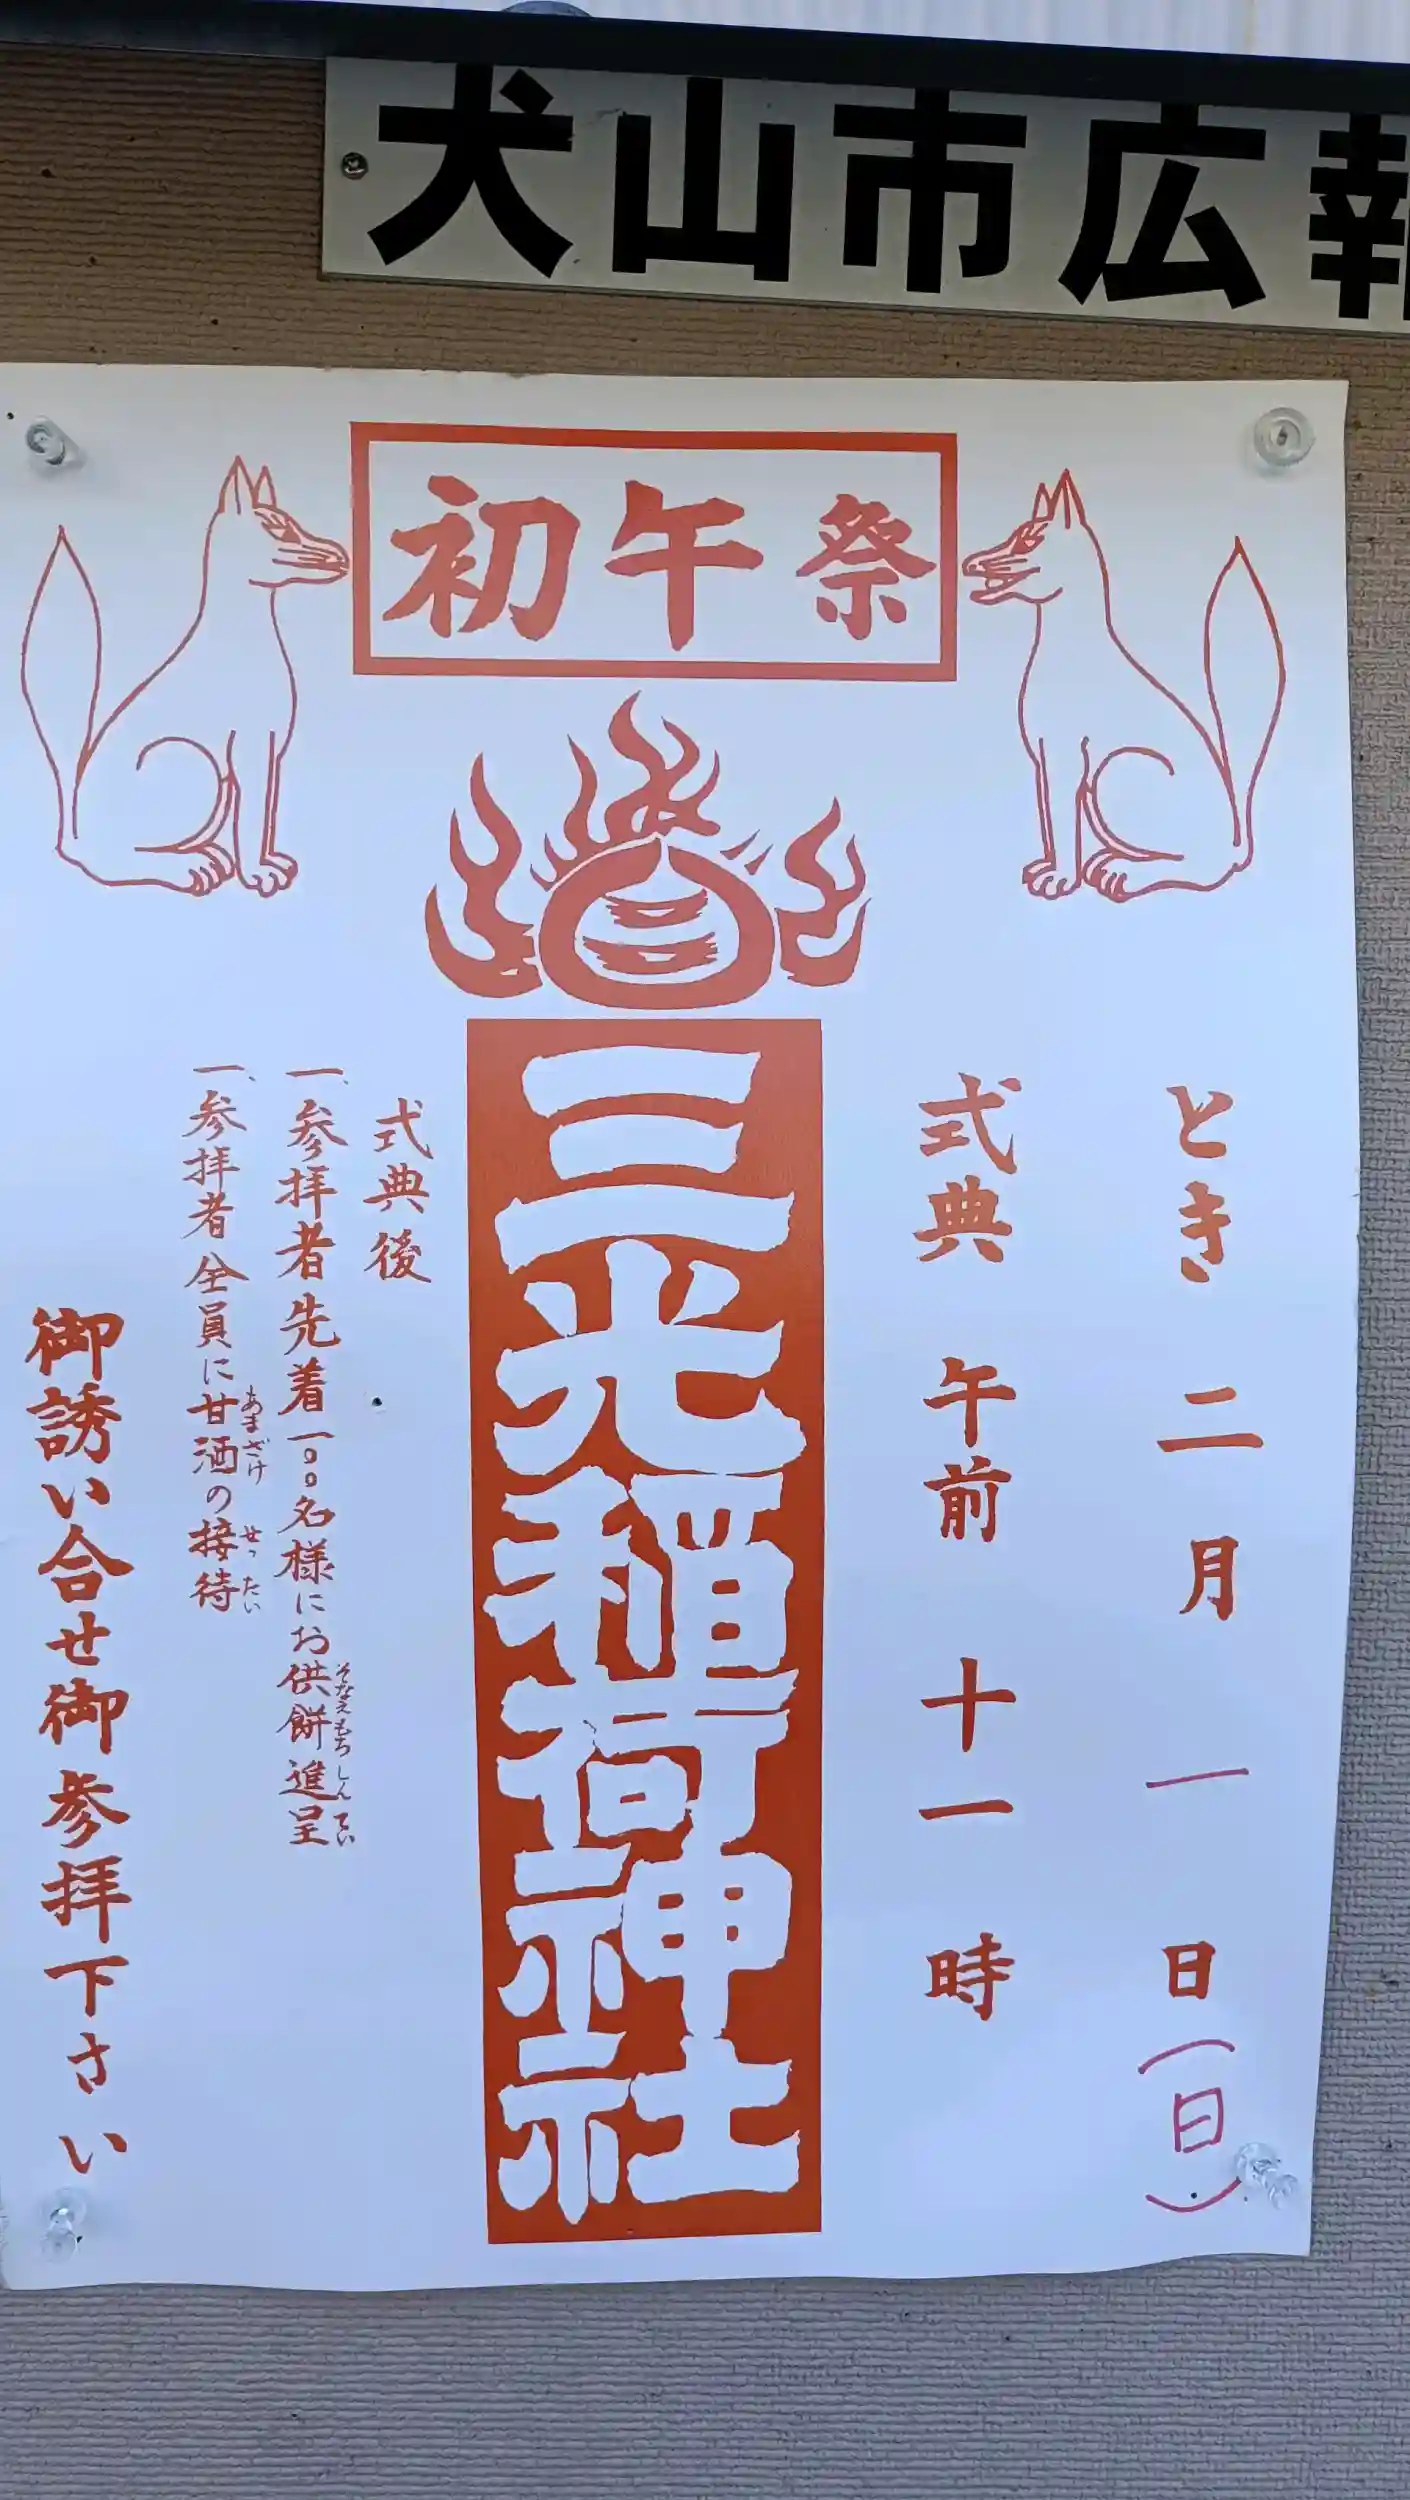 犬山市広報
初午祭
とき 二月 一 日(日)
式典 午前 十一 時
三光稲荷神社
式典後
一、参拝者先着一〇〇名様にお供餅進呈
そなえもち しんてい
一、参拝者全員に甘酒の接待
あまざけ せったい
御誘い合せ御参拝下さい